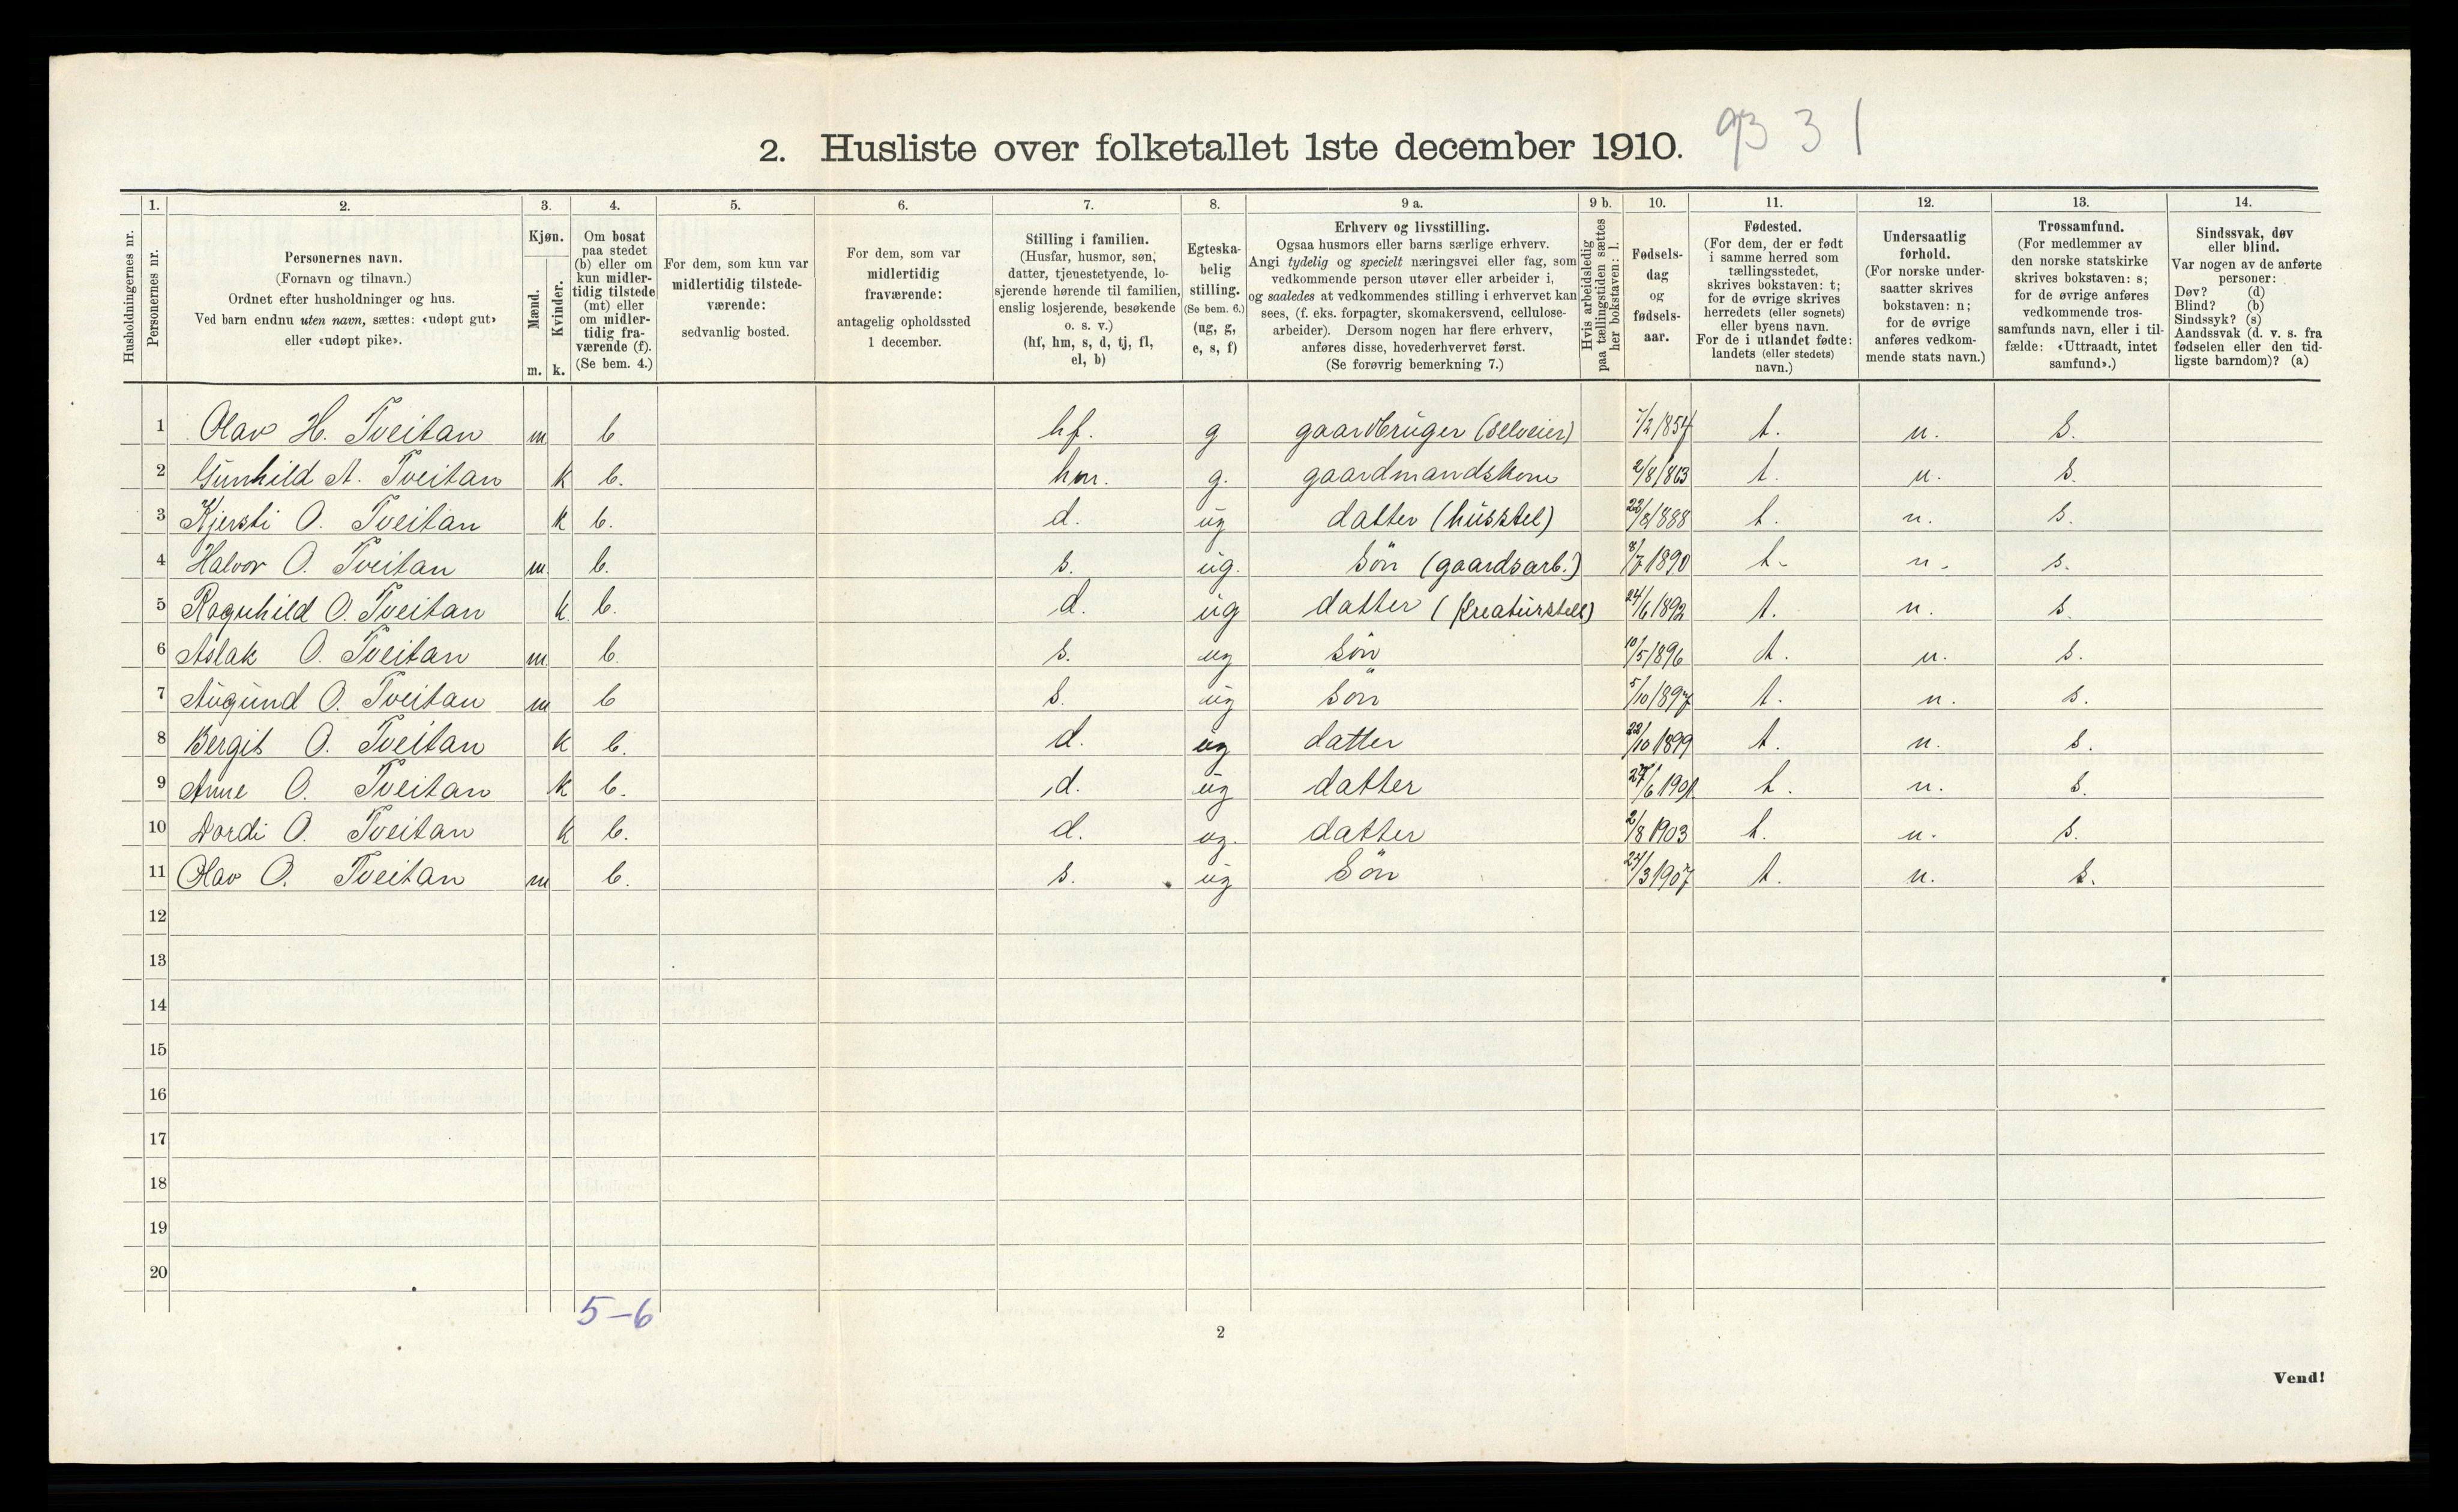 2. Husliste over folketallet 1ste december 1910. 93 3 1
Husholdningernes nr.
1.
Personernes nr.
2.
Personernes navn.
(Fornavn og tilnavn.)
Ordnet efter husholdninger og hus.
Ved barn endnu uten navn, sættes: «udøpt gut»
eller «udøpt pike».
3.
Kjøn.
Mænd.
Kvinder.
m. k.
4.
Om bosat
paa stedet
(b) eller om
kun midler-
tidig tilstede
(mt) eller
om midler-
tidig fra-
værende (f).
(Se bem. 4.)
5.
For dem, som kun var
midlertidig tilstede-
værende:
sedvanlig bosted.
6.
For dem, som var
midlertidig
fraværende:
antagelig opholdssted
1 december.
7.
Stilling i familien.
(Husfar, husmor, søn,
datter, tjenestetyende, lo-
sjerende hørende til familien,
enslig losjerende, besøkende
o. s. v.)
(hf, hm, s, d, tj, fl,
el, b)
8.
Egteska-
belig
stilling.
(Se bem. 6.)
(ug, g,
e, s, f)
9 a.
Erhverv og livsstilling.
Ogsaa husmors eller barns særlige erhverv.
Angi tydelig og specielt næringsvei eller fag, som
vedkommende person utøver eller arbeider i,
og saaledes at vedkommendes stilling i erhvervet kan
sees, (f. eks. forpagter, skomakersvend, cellulose-
arbeider). Dersom nogen har flere erhverv,
anføres disse, hovederhvervet først.
(Se forøvrig bemerkning 7.)
9 b.
Hvis arbeidsledig
paa tællingstiden sættes
her bokstaven: l.
10.
Fødsels-
dag
og
fødsels-
aar.
11.
Fødested.
(For dem, der er født
i samme herred som
tællingsstedet,
skrives bokstaven: t;
for de øvrige skrives
herredets (eller sognets)
eller byens navn.
For de i utlandet fødte:
landets (eller stedets)
navn.)
12.
Undersaatlig
forhold.
(For norske under-
saatter skrives
bokstaven: n;
for de øvrige
anføres vedkom-
mende stats navn.)
13.
Trossamfund.
(For medlemmer av
den norske statskirke
skrives bokstaven: s;
for de øvrige anføres
vedkommende tros-
samfunds navn, eller i til-
fælde: «Uttraadt, intet
samfund».)
14.
Sindssvak, døv
eller blind.
Var nogen av de anførte
personer:
Døv? (d)
Blind? (b)
Sindssyk? (s)
Aandssvak (d. v. s. fra
fødselen eller den tid-
ligste barndom)? (a)
1 Olav H. Tveitan m b hf. g gaardbruger (selveier) 7/2 1854 t. n. s.
2 Gunhild A. Tveitan k b. hm. g. gaardmandskone 2/8 1863 t. n. s.
3 Kjersti O. Tveitan k b. d. ug datter (husstel) 23/8 1888 t. n. s.
4 Halvor O. Tveitan m b. s. ug. Søn (gaardsarb.) 8/7 1890 t. n. s.
5 Ragnhild O. Tveitan k. b. d. ug datter (kreaturstell) 24/6 1892 t. n. s.
6 Aslak O. Tveitan m b. s. ug søn 10/5 1896 t. n. s.
7 Augund O. Tveitan m b s. ug søn 5/10 1897 t. n. s.
8 Bergit O. Tveitan k b. d. ug datter 22/10 1899 t. n. s.
9 Anne O. Tveitan k b. d. ug datter 27/6 1901 t. n. s.
10 Dordi O. Tveitan k b. d. ug. datter 2/8 1903 t. n. s.
11 Olav O. Tveitan m b. s. ug Søn 24/3 1907 t. n. s.
12
13
14
15
16
17
18
19
20
5-6
2
Vend!